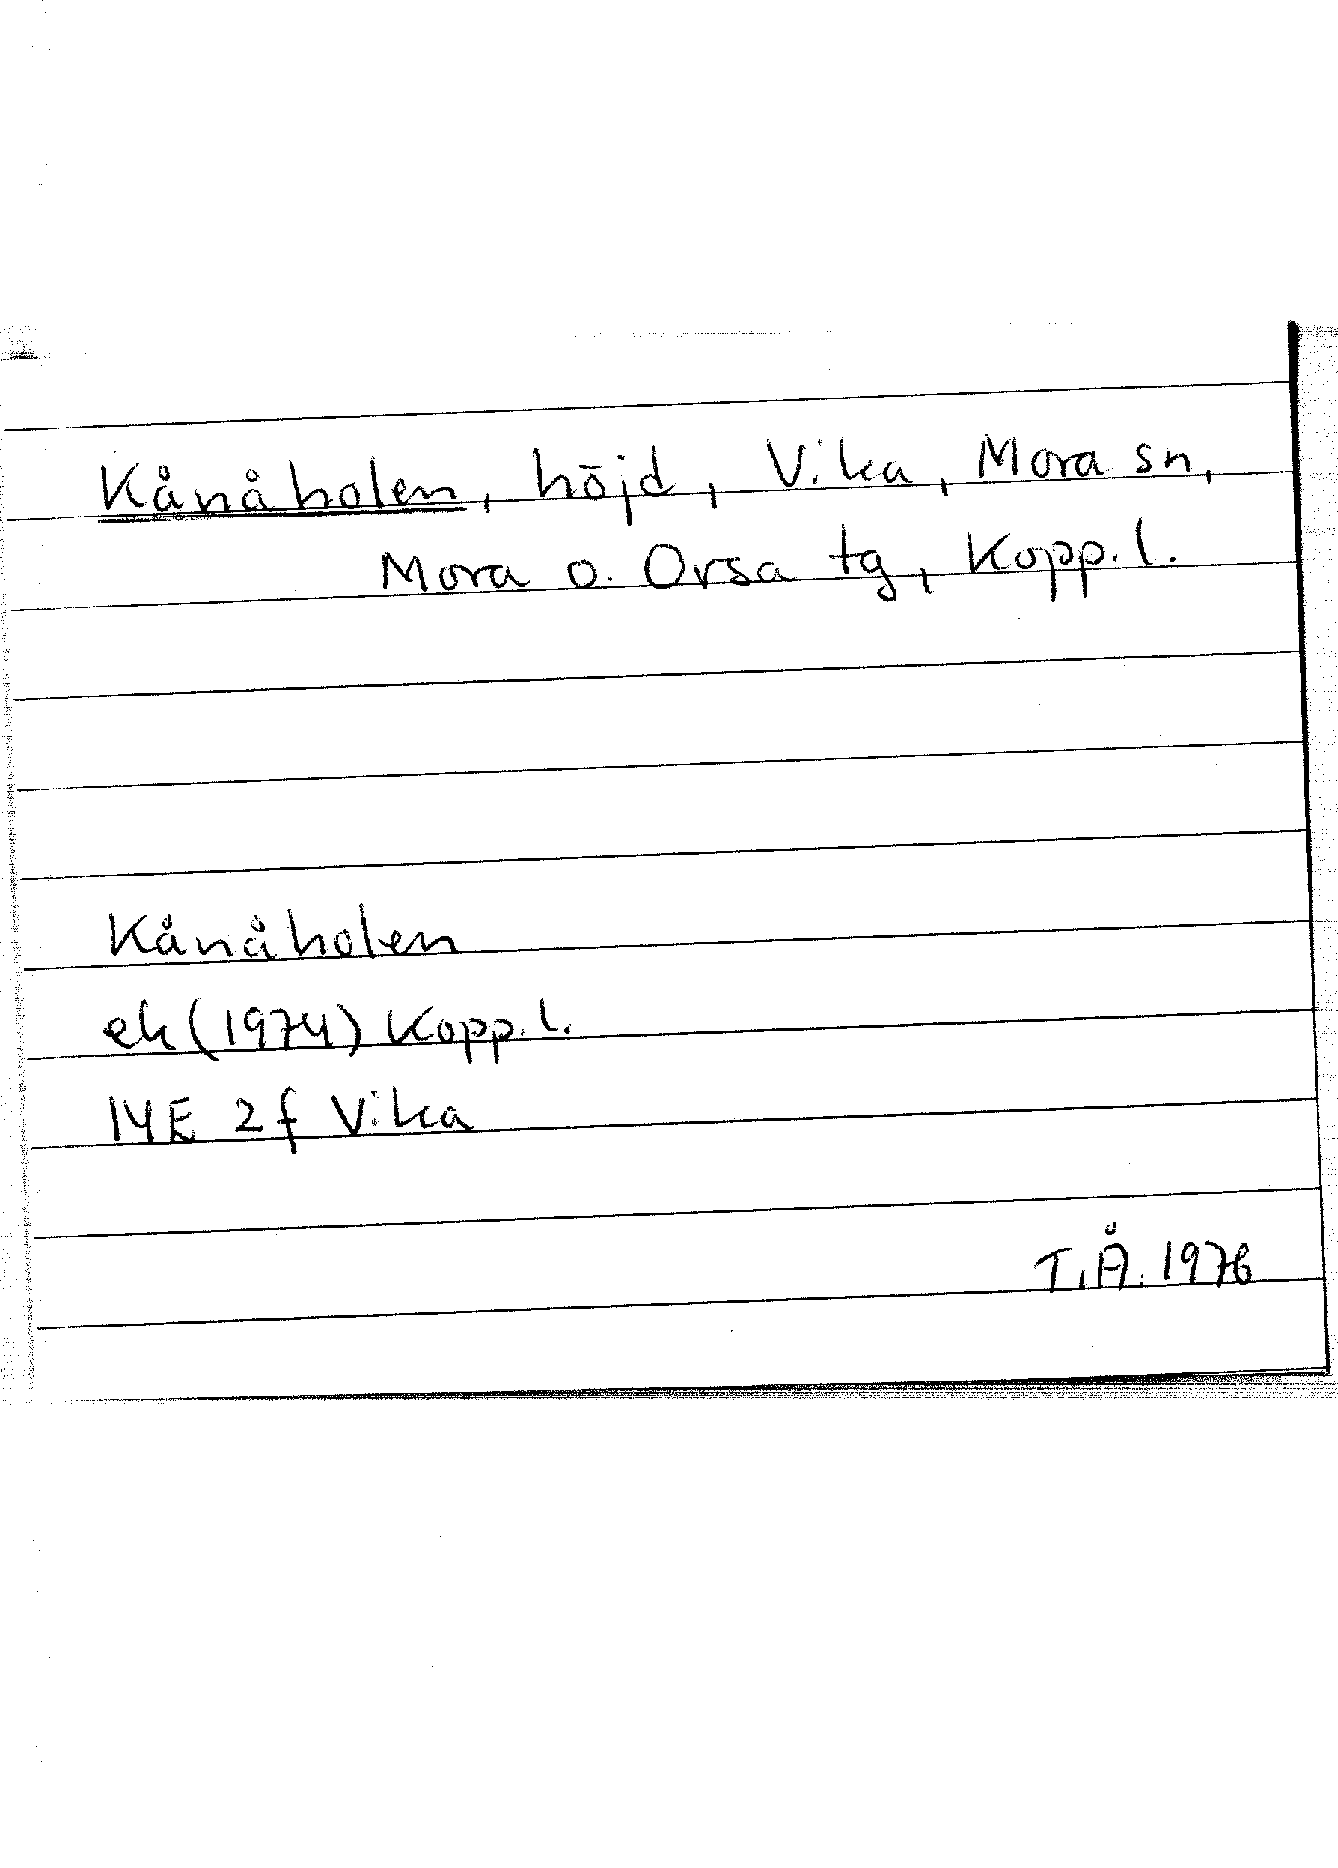 Kånåholen, höjd, Vika, Mora sn,
Mora o. Orsa tg, Kopp. l.
Kånåholen
ek (1974) Kopp. l.
14E 2f Vika
T.Å. 1976